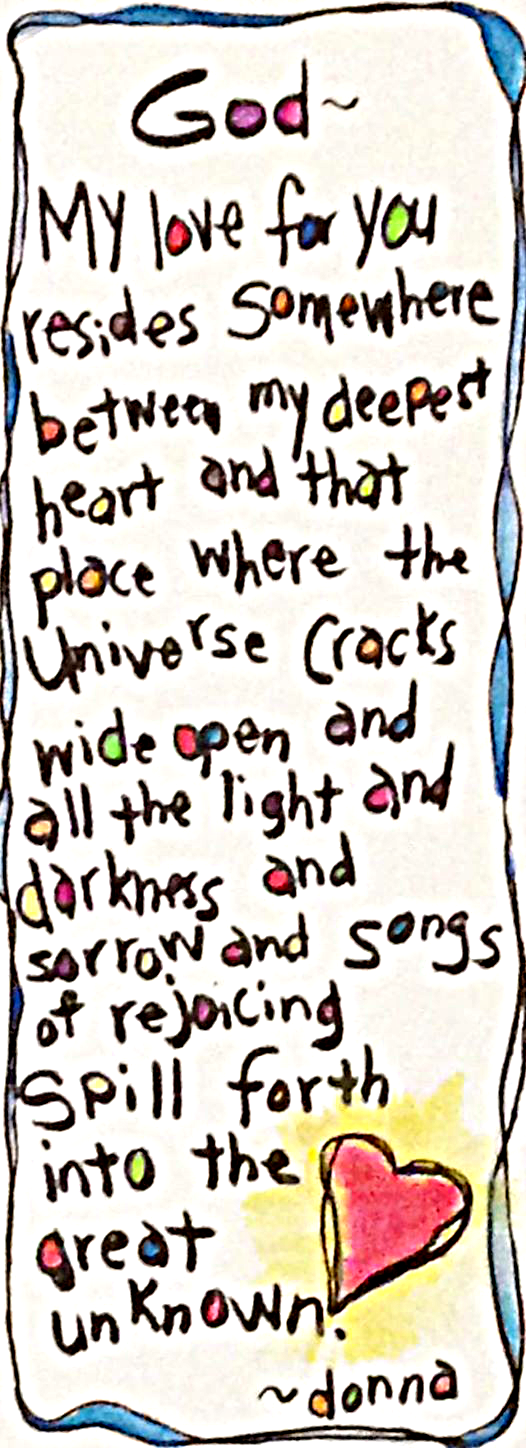 God~
My love for you
resides somewhere
between my deepest
heart and that
place where the
Universe cracks
wide open and
all the light and
darkness and
sorrow and songs
of rejoicing
spill forth
into the
great
unknown.
~donna